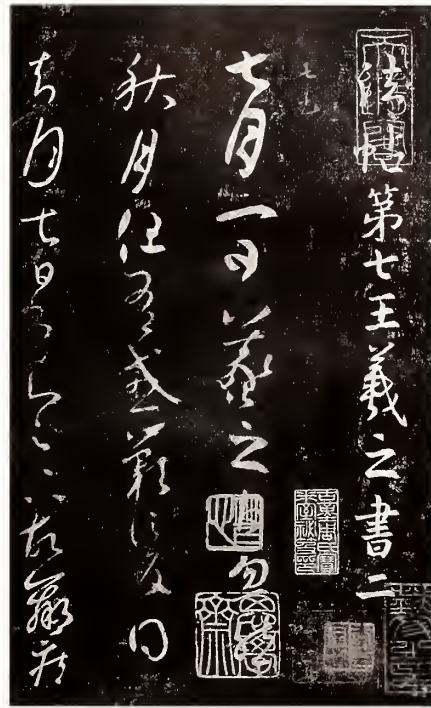 絳帖第七王羲之書二
七月一日羲之白忽然
秋月但有感歎信反得
去月七日書知足下故羸疾